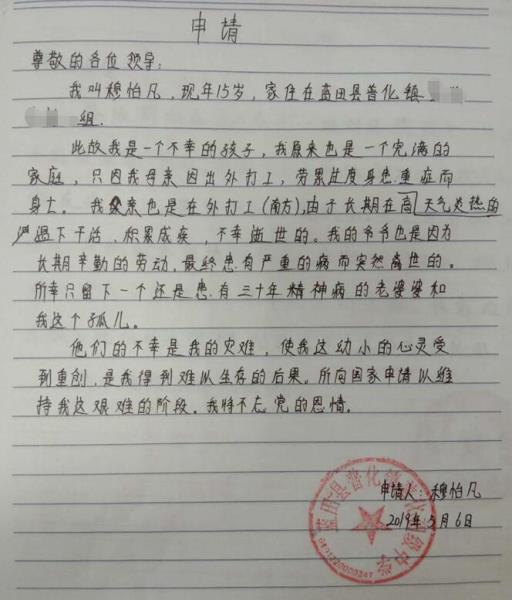 申请
尊敬的各位领导:
我叫穆怡凡,现年15岁,家住在蓝田县普化镇
组.
此故我是一个不幸的孩子,我原来也是一个完满的
家庭,只因我母亲因出外打工,劳累过度身患重症而
身亡。我父亲也是在外打工(南方),由于长期在高天气炎热的
温下干活,积累成疾,不幸逝世的。我的爷爷也是因为
长期辛勤的劳动,最终患有严重的病而突然离世的。
所幸只留下一个还是患有三十年精神病的老婆婆和
我这个孤儿。
他们的不幸是我的灾难,使我这幼小的心灵受
到重创,是我得到难以生存的后果。所向国家申请以维
持我这艰难的阶段。我特不忘党的恩情。
申请人:穆怡凡
2019年5月6日
蓝田县普化镇普化初级中学
6101220000347